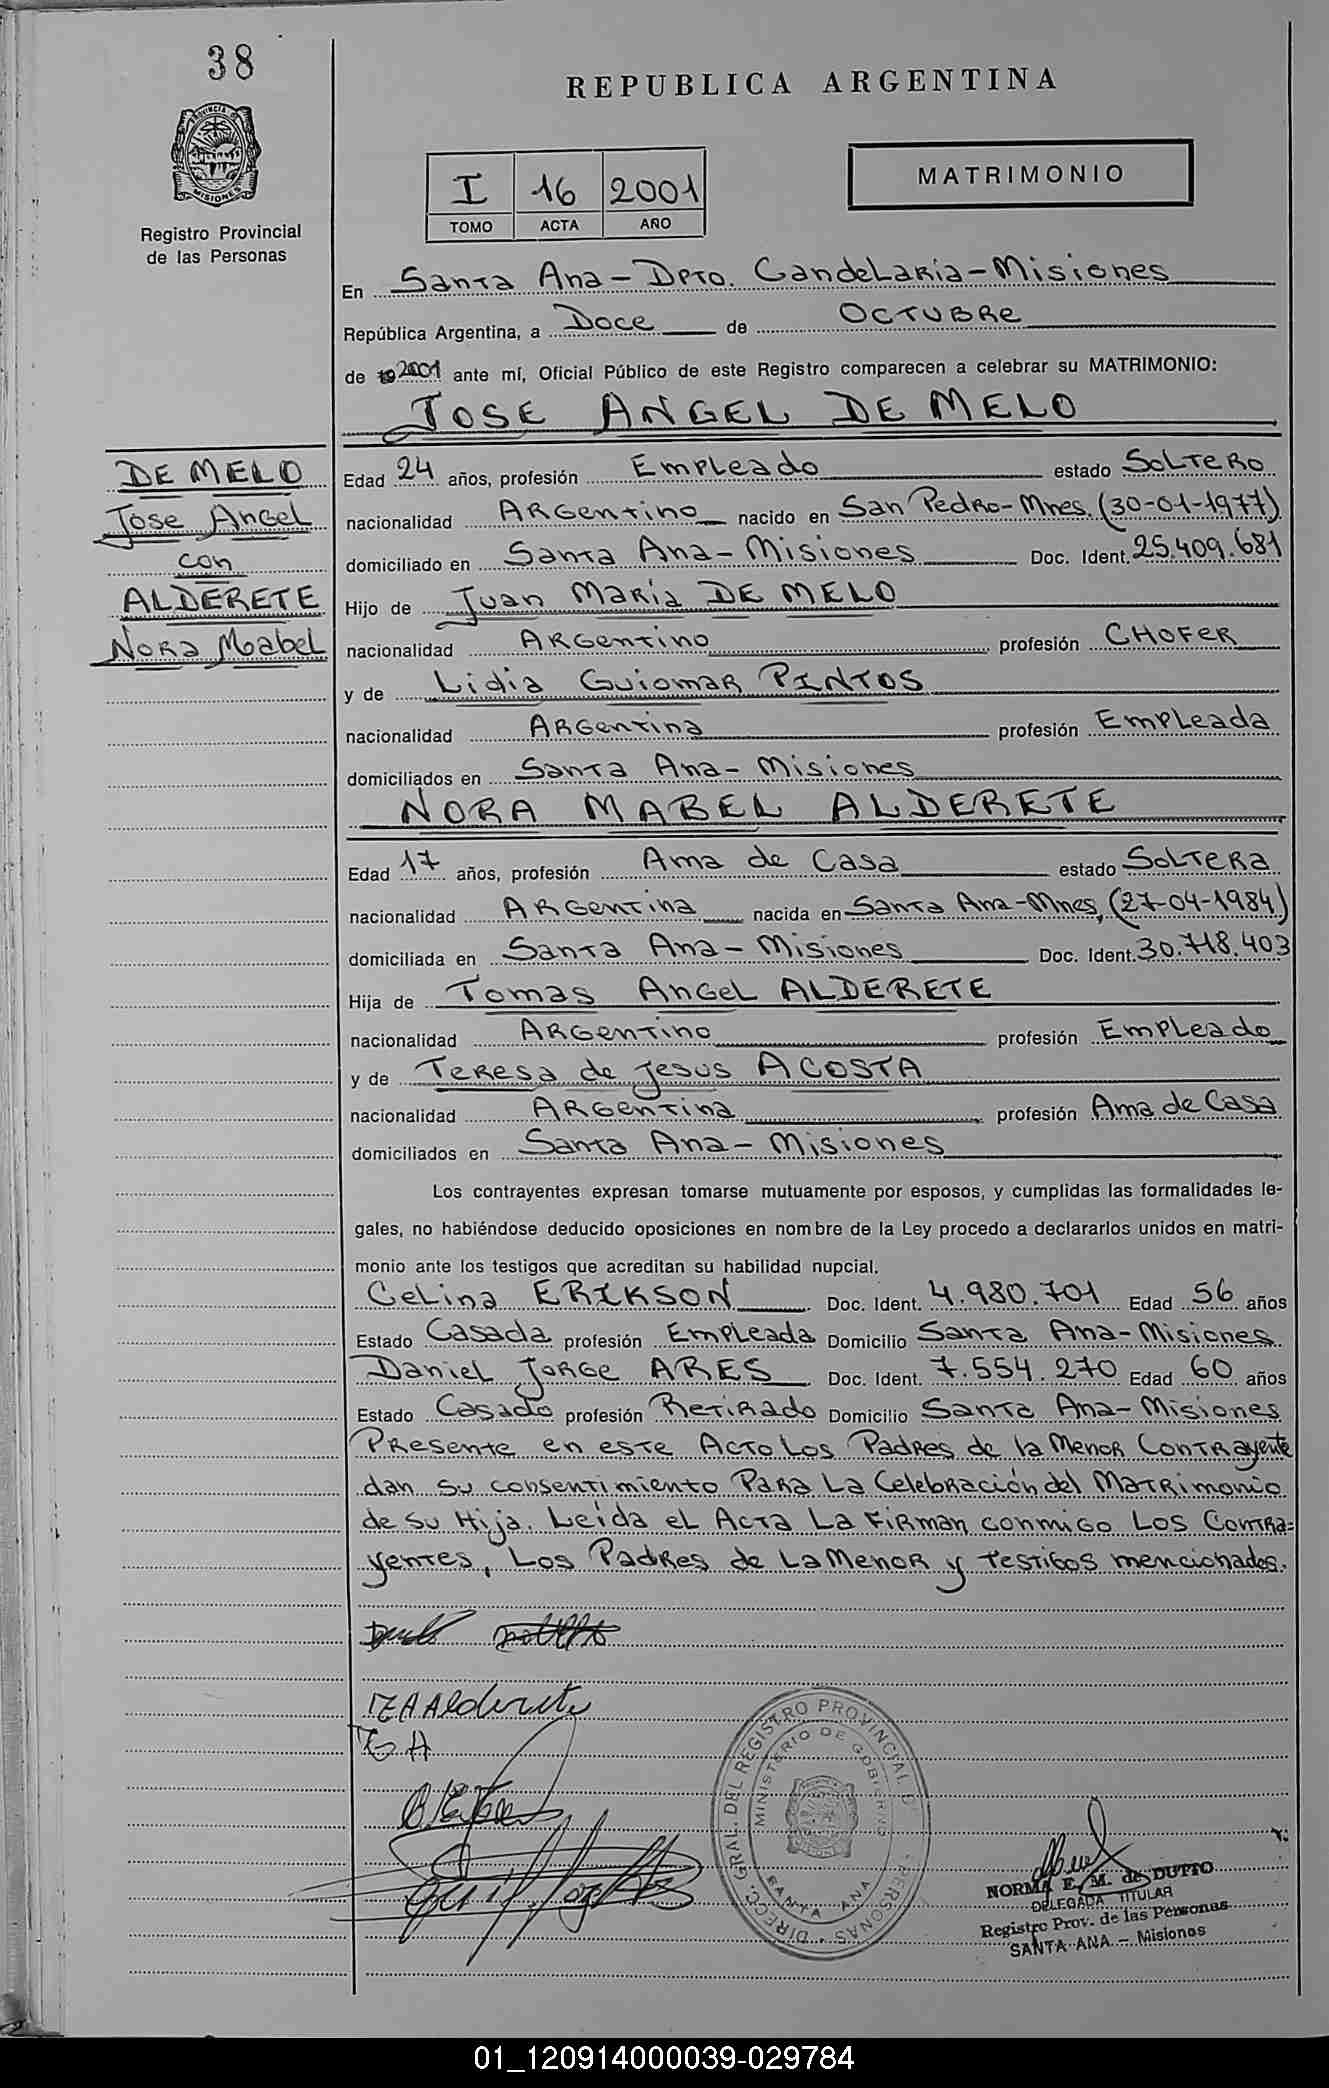 38
REPUBLICA ARGENTINA
PROVINCIA DE
MISIONES
Registro Provincial
de las Personas
I 16 2001
TOMO ACTA AÑO
MATRIMONIO
En Santa Ana - Dpto. Candelaria - Misiones
República Argentina, a Doce de Octubre
de 2001 ante mí, Oficial Público de este Registro comparecen a celebrar su MATRIMONIO:
JOSE ANGEL DE MELO
DE MELO
Jose Angel
con
ALDERETE
Nora Mabel
Edad 24 años, profesión Empleado estado Soltero
nacionalidad Argentino nacido en San Pedro-Mnes. (30-01-1977)
domiciliado en Santa Ana - Misiones Doc. Ident. 25.409.681
Hijo de Juan Maria DE MELO
nacionalidad Argentino profesión CHOFER
y de Lidia Guiomar PINTOS
nacionalidad Argentina profesión Empleada
domiciliados en Santa Ana - Misiones
NORA MABEL ALDERETE
Edad 17 años, profesión Ama de Casa estado Soltera
nacionalidad Argentina nacida en Santa Ana-Mnes, (27-04-1984)
domiciliada en Santa Ana - Misiones Doc. Ident. 30.718.403
Hija de Tomas Angel ALDERETE
nacionalidad Argentino profesión Empleado
y de Teresa de Jesus ACOSTA
nacionalidad Argentina profesión Ama de Casa
domiciliados en Santa Ana - Misiones
Los contrayentes expresan tomarse mutuamente por esposos, y cumplidas las formalidades le-
gales, no habiéndose deducido oposiciones en nombre de la Ley procedo a declararlos unidos en matri-
monio ante los testigos que acreditan su habilidad nupcial.
Celina ERIKSON Doc. Ident. 4.980.701 Edad 56 años
Estado Casada profesión Empleada Domicilio Santa Ana - Misiones
Daniel Jorge ARES Doc. Ident. 7.554.270 Edad 60 años
Estado Casado profesión Retirado Domicilio Santa Ana - Misiones
Presente en este Acto Los Padres de la Menor Contrayente
dan su consentimiento Para La Celebración del Matrimonio
de su Hija. Leída el Acta La Firman conmigo Los Contra=
yentes, Los Padres de La Menor y Testigos mencionados.
T A Alderete
T. A
DIREC. GRAL. DEL REGISTRO PROVINCIAL D PERSONAS
MINISTERIO DE GOBIERNO
SANTA ANA
NORMA E. M. de DUTTO
DELEGADA TITULAR
Registro Prov. de las Personas
SANTA ANA - Misiones
01_120914000039-029784